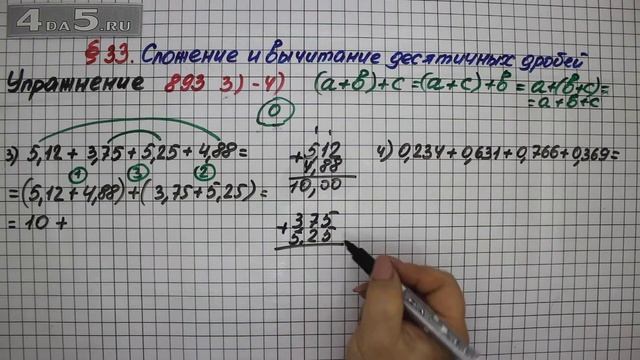 4DA5.RU
§ 33. Сложение и вычитание десятичных дробей
Упражнение 893 3)-4) (a+b)+c=(a+c)+b=a+(b+c)=
=a+b+c
0
3) 5,12+3,75+5,25+4,88=
1 3 2
=(5,12+4,88)+(3,75+5,25)=
=10+
+5,12
4,88
10,00
+3 75
5,25
4) 0,234+0,631+0,766+0,369=